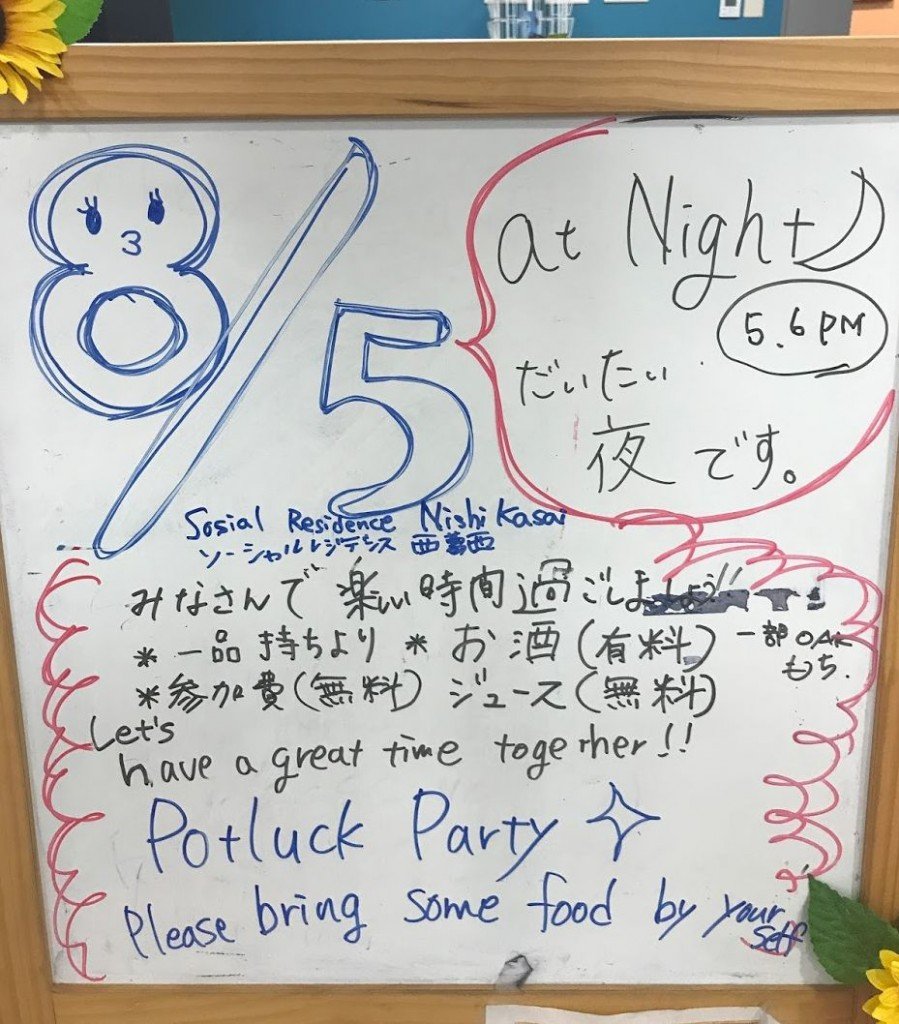 8/5
at Night
5.6 PM
だいたい
夜です。
Sosial Residence Nishi Kasai
ソーシャルレジデンス 西葛西
みなさんで 楽しい時間過ごしましょう!!
* 一品持ちより * お酒(有料) 一部OAK
もち.
*参加費(無料) ジュース(無料)
Let's
have a great time together!!
Potluck Party
Please bring some food by your
self